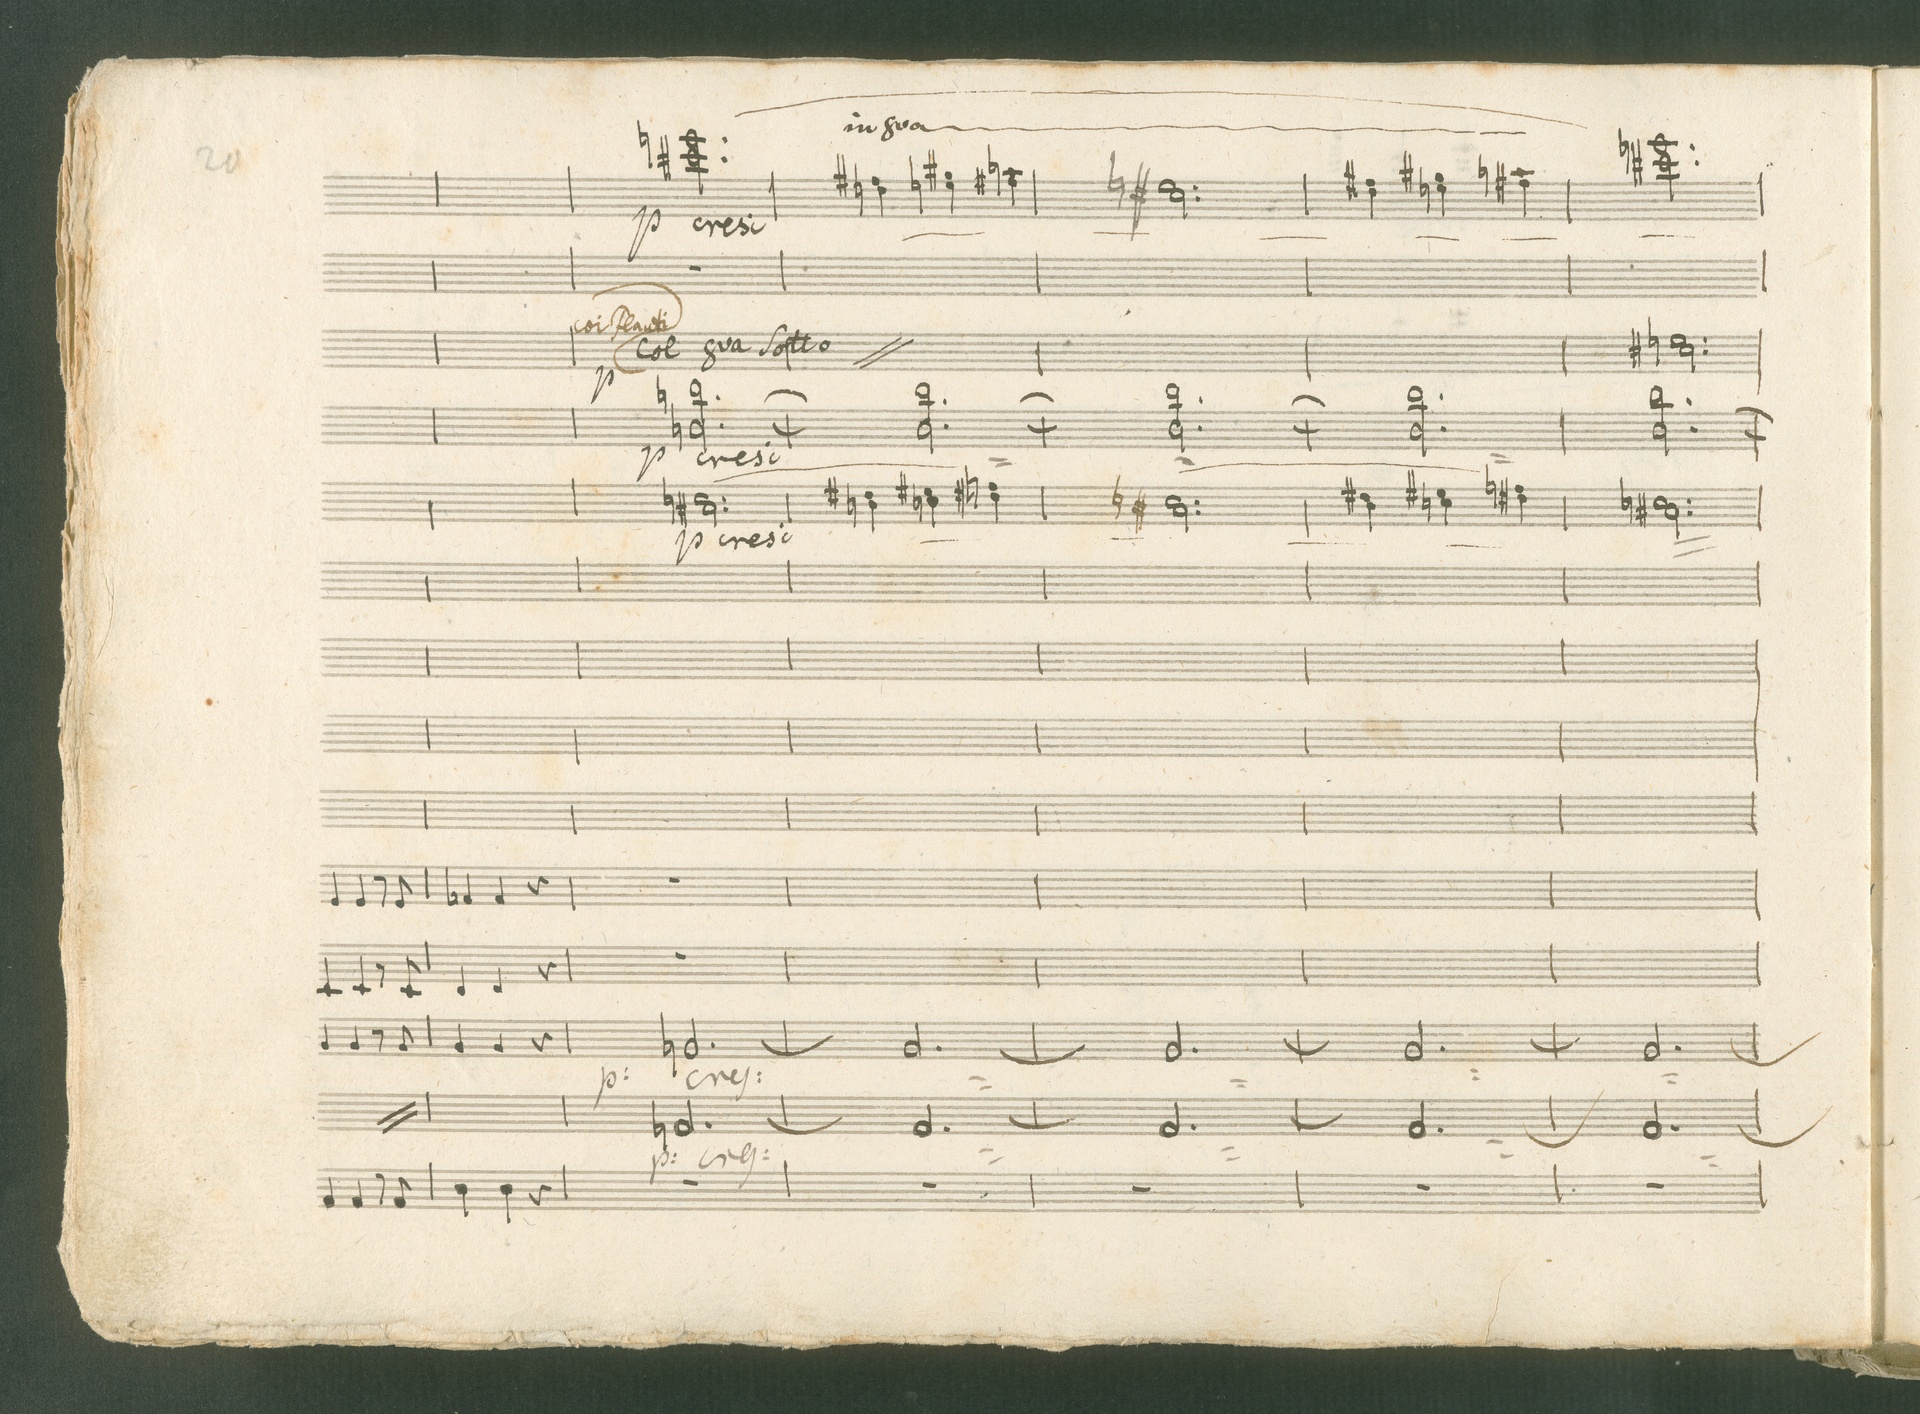 20
in 8va
p cresc
coi Flauti
Col 8va Sotto
p
p cresc
p cresc
p: cres:
p: cres: